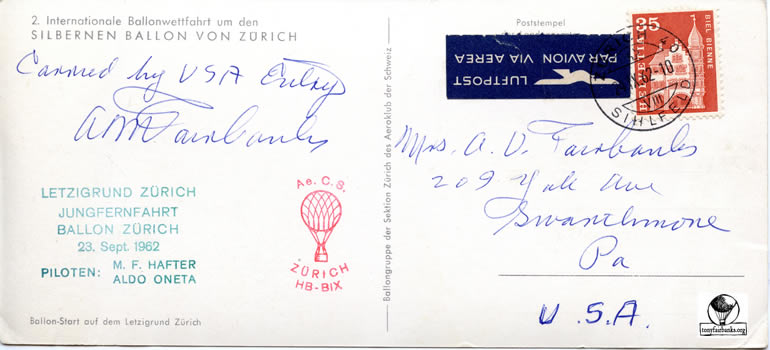 2. Internationale Ballonwettfahrt um den
SILBERNEN BALLON VON ZÜRICH
Carried by USA Entry
A D Fairbanks
LETZIGRUND ZÜRICH
JUNGFERNFAHRT
BALLON ZÜRICH
23. Sept. 1962
PILOTEN: M. F. HAFTER
ALDO ONETA
Ae. C. S.
ZÜRICH
HB-BIX
Ballon-Start auf dem Letzigrund Zürich
Ballongruppe der Sektion Zürich des Aeroklub der Schweiz
Poststempel
LUFTPOST
PAR AVION VIA AEREA
35
BIEL BIENNE
HELVETIA
62-10
VIII
SIHLFELD
Mrs. A. D. Fairbanks
209 Yale Ave
Swarthmore
Pa
U.S.A.
tonyfairbanks.org